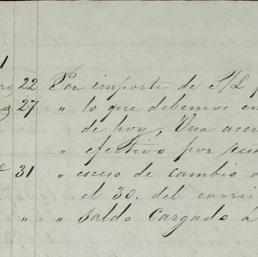 1
22 Por importe de S/L
27 " lo que debemos en
de hoy, Una
" efectivo por
31 " esceso de cambio
el 30. del corri
" " Saldo Cargado á